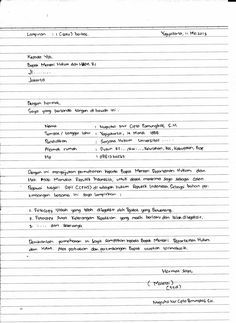 Lampiran : 1 (satu) berkas Yogyakarta, 11 Mei 2013
Kepada Yth.
Bapak Menteri Hukum dan HAM RI
Jl. ......
Jakarta
Dengan hormat,
Saya yang bertanda tangan di bawah ini :
Nama : Nugroho Nur Cipto Pamungkas, S.H.
Tempat / tanggal lahir : Yogyakarta, 14 Maret 1988
Pendidikan : Sarjana Hukum Universitas ......
Alamat rumah : Dusun RT ... /RW ..., Kelurahan, Kec, Kabupaten, Prov
Hp :
Dengan ini mengajukan permohonan kepada Bapak Menteri Departemen Hukum dan
Hak Asasi Manusia Republik Indonesia, untuk dapat menerima saya sebagai Calon
Pegawai Negeri Sipil (CPNS) di Republik Indonesia. Sebagai bahan per-
timbangan bersama ini saya lampirkan :
1. Fotocopy Ijazah yang telah dilegalisir oleh Pejabat yang berwenang.
2. Fotocopy Surat Keterangan Kepolisian yang masih berlaku dan telah dilegalisir.
3. ..... dan seterusnya
Demikianlah permohonan ini saya sampaikan kepada Bapak Menteri Departemen Hukum
dan HAM. Atas perhatian dan pertimbangan Bapak diucapkan terimakasih.
Hormat saya,
( Materai )
Nugroho Nur Cipto Pamungkas, S.H.